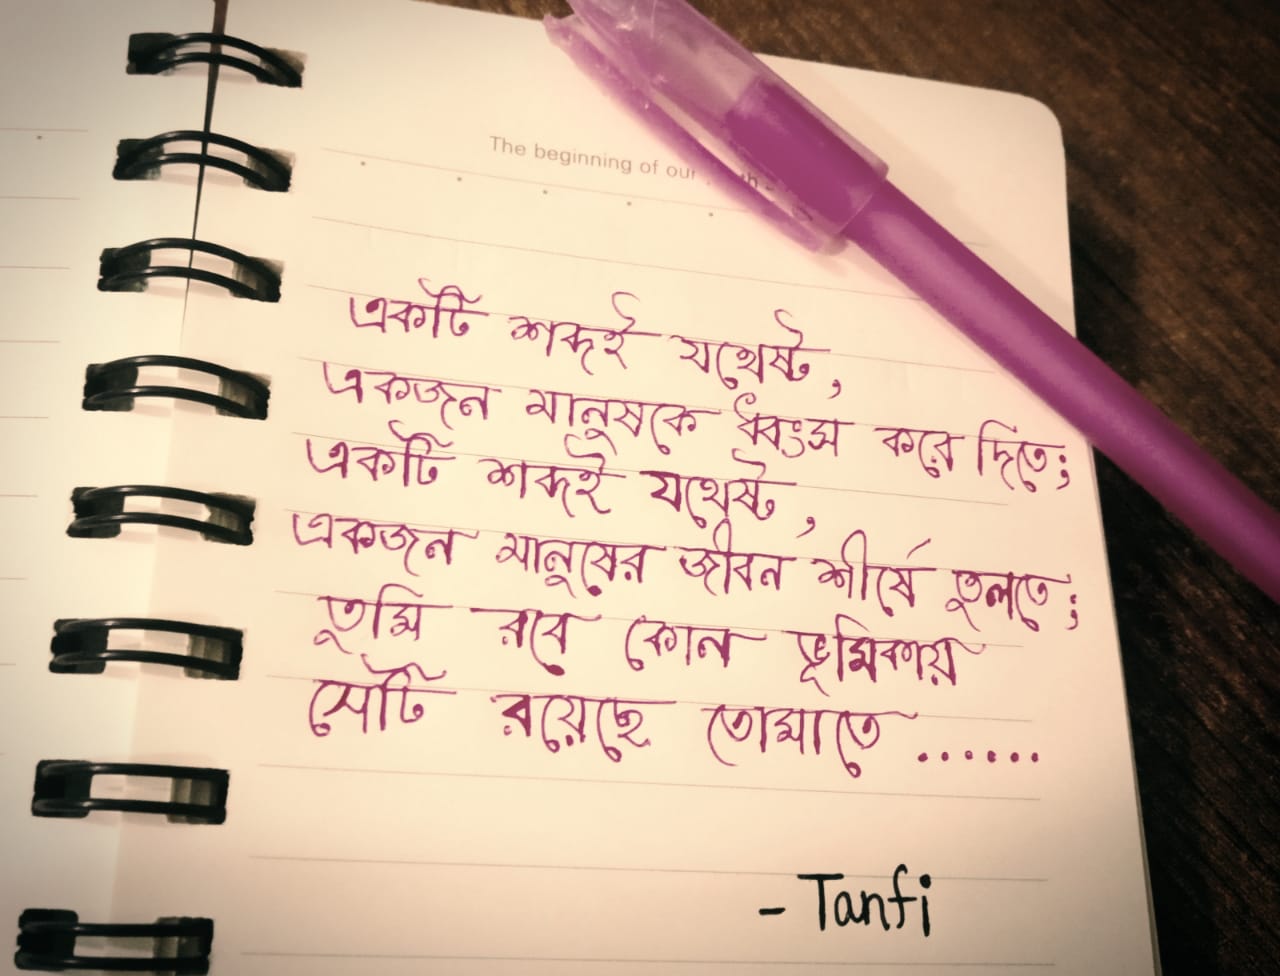 The beginning of our
একটি শব্দই যথেষ্ট,
একজন মানুষকে ধ্বংস করে দিতে;
একটি শব্দই যথেষ্ট,
একজন মানুষের জীবন শীর্ষে তুলতে;
তুমি রবে কোন ভূমিকায়
সেটি রয়েছে তোমাতে ......
- Tanfi